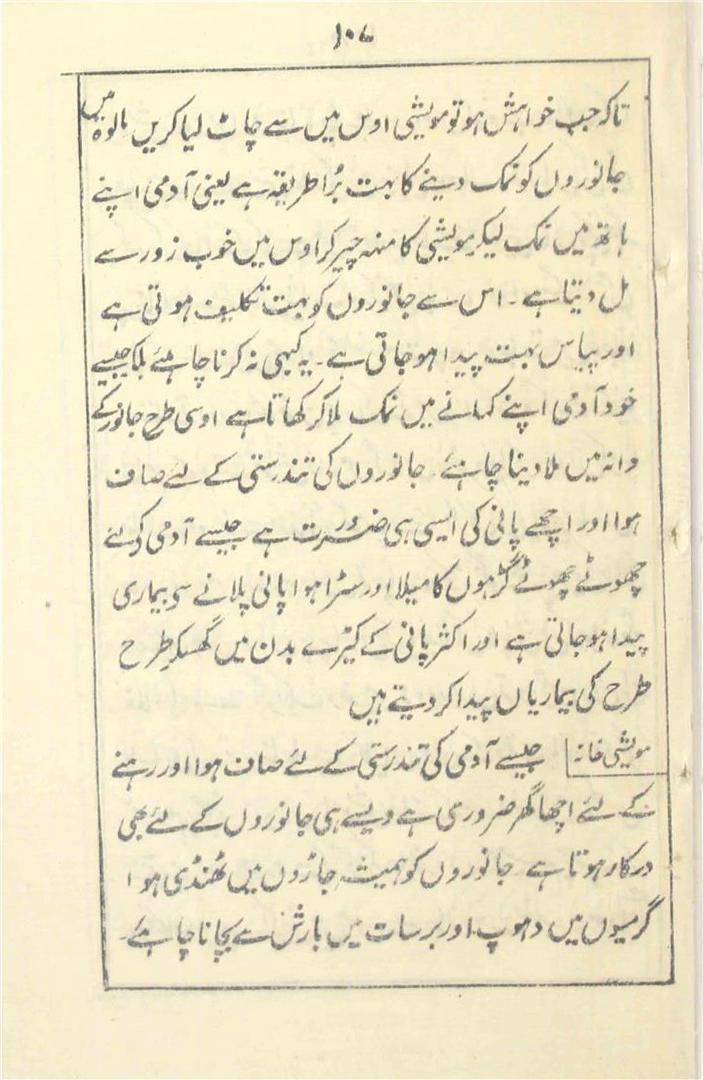 ۱۰۷
تاکہ جب خواہش ہو تو مویشی اوس میں سے چاٹ لیا کریں مالوہ میں
جانوروں کو نمک دینے کا بہت بُرا طریقہ ہے یعنی آدمی اپنے
ہاتھ میں نمک لیکر مویشی کا منہ چیر کر اوس میں خوب زور سے
مل دیتا ہے۔ اس سے جانوروں کو بہت تکلیف ہوتی ہے
اور پیاس بہت پیدا ہو جاتی ہے۔ یہ کبھی نہ کرنا چاہئے بلکہ جیسے
خود آدمی اپنے کھانے میں نمک ملا کر کھاتا ہے اوسی طرح جانور کے
دانہ میں ملا دینا چاہئے۔ جانوروں کی تندرستی کے لئے صاف
ہوا اور اچھے پانی کی ایسی ہی ضرورت ہے جیسے آدمی کو لئے
چھوٹے چھوٹے گڑہوں کا میلا اور سڑا ہوا پانی پلانے سی بیماری
پیدا ہو جاتی ہے اور اکثر پانی کے کیڑے بدن میں گھسکر طرح
طرح کی بیماریاں پیدا کر دیتے ہیں
مویشی خانہ جیسے آدمی کی تندرستی کے لئے صاف ہوا اور رہنے
کے لئے اچھا گھر ضروری ہے ویسے ہی جانوروں کے لئے بھی
درکار ہوتا ہے۔ جانوروں کو ہمیشہ جاڑوں میں ٹھنڈی ہوا
گرمیوں میں دھوپ اور برسات میں بارش سے بچانا چاہئے۔